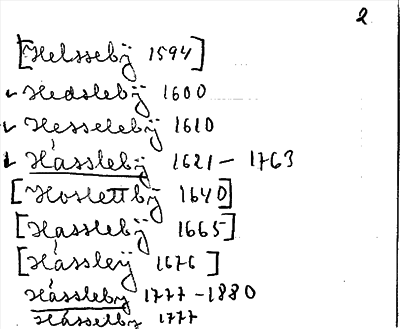 2
[Helssebÿ 1594]
✓ Hedslebÿ 1600
✓ Hesselebÿ 1610
✓ Hásslebÿ 1621 – 1763
[Hoslettbÿ 1640]
[Hasslebÿ 1665]
[Hássleÿ 1676]
Hássleby 1777 – 1880
Hásselby 1777